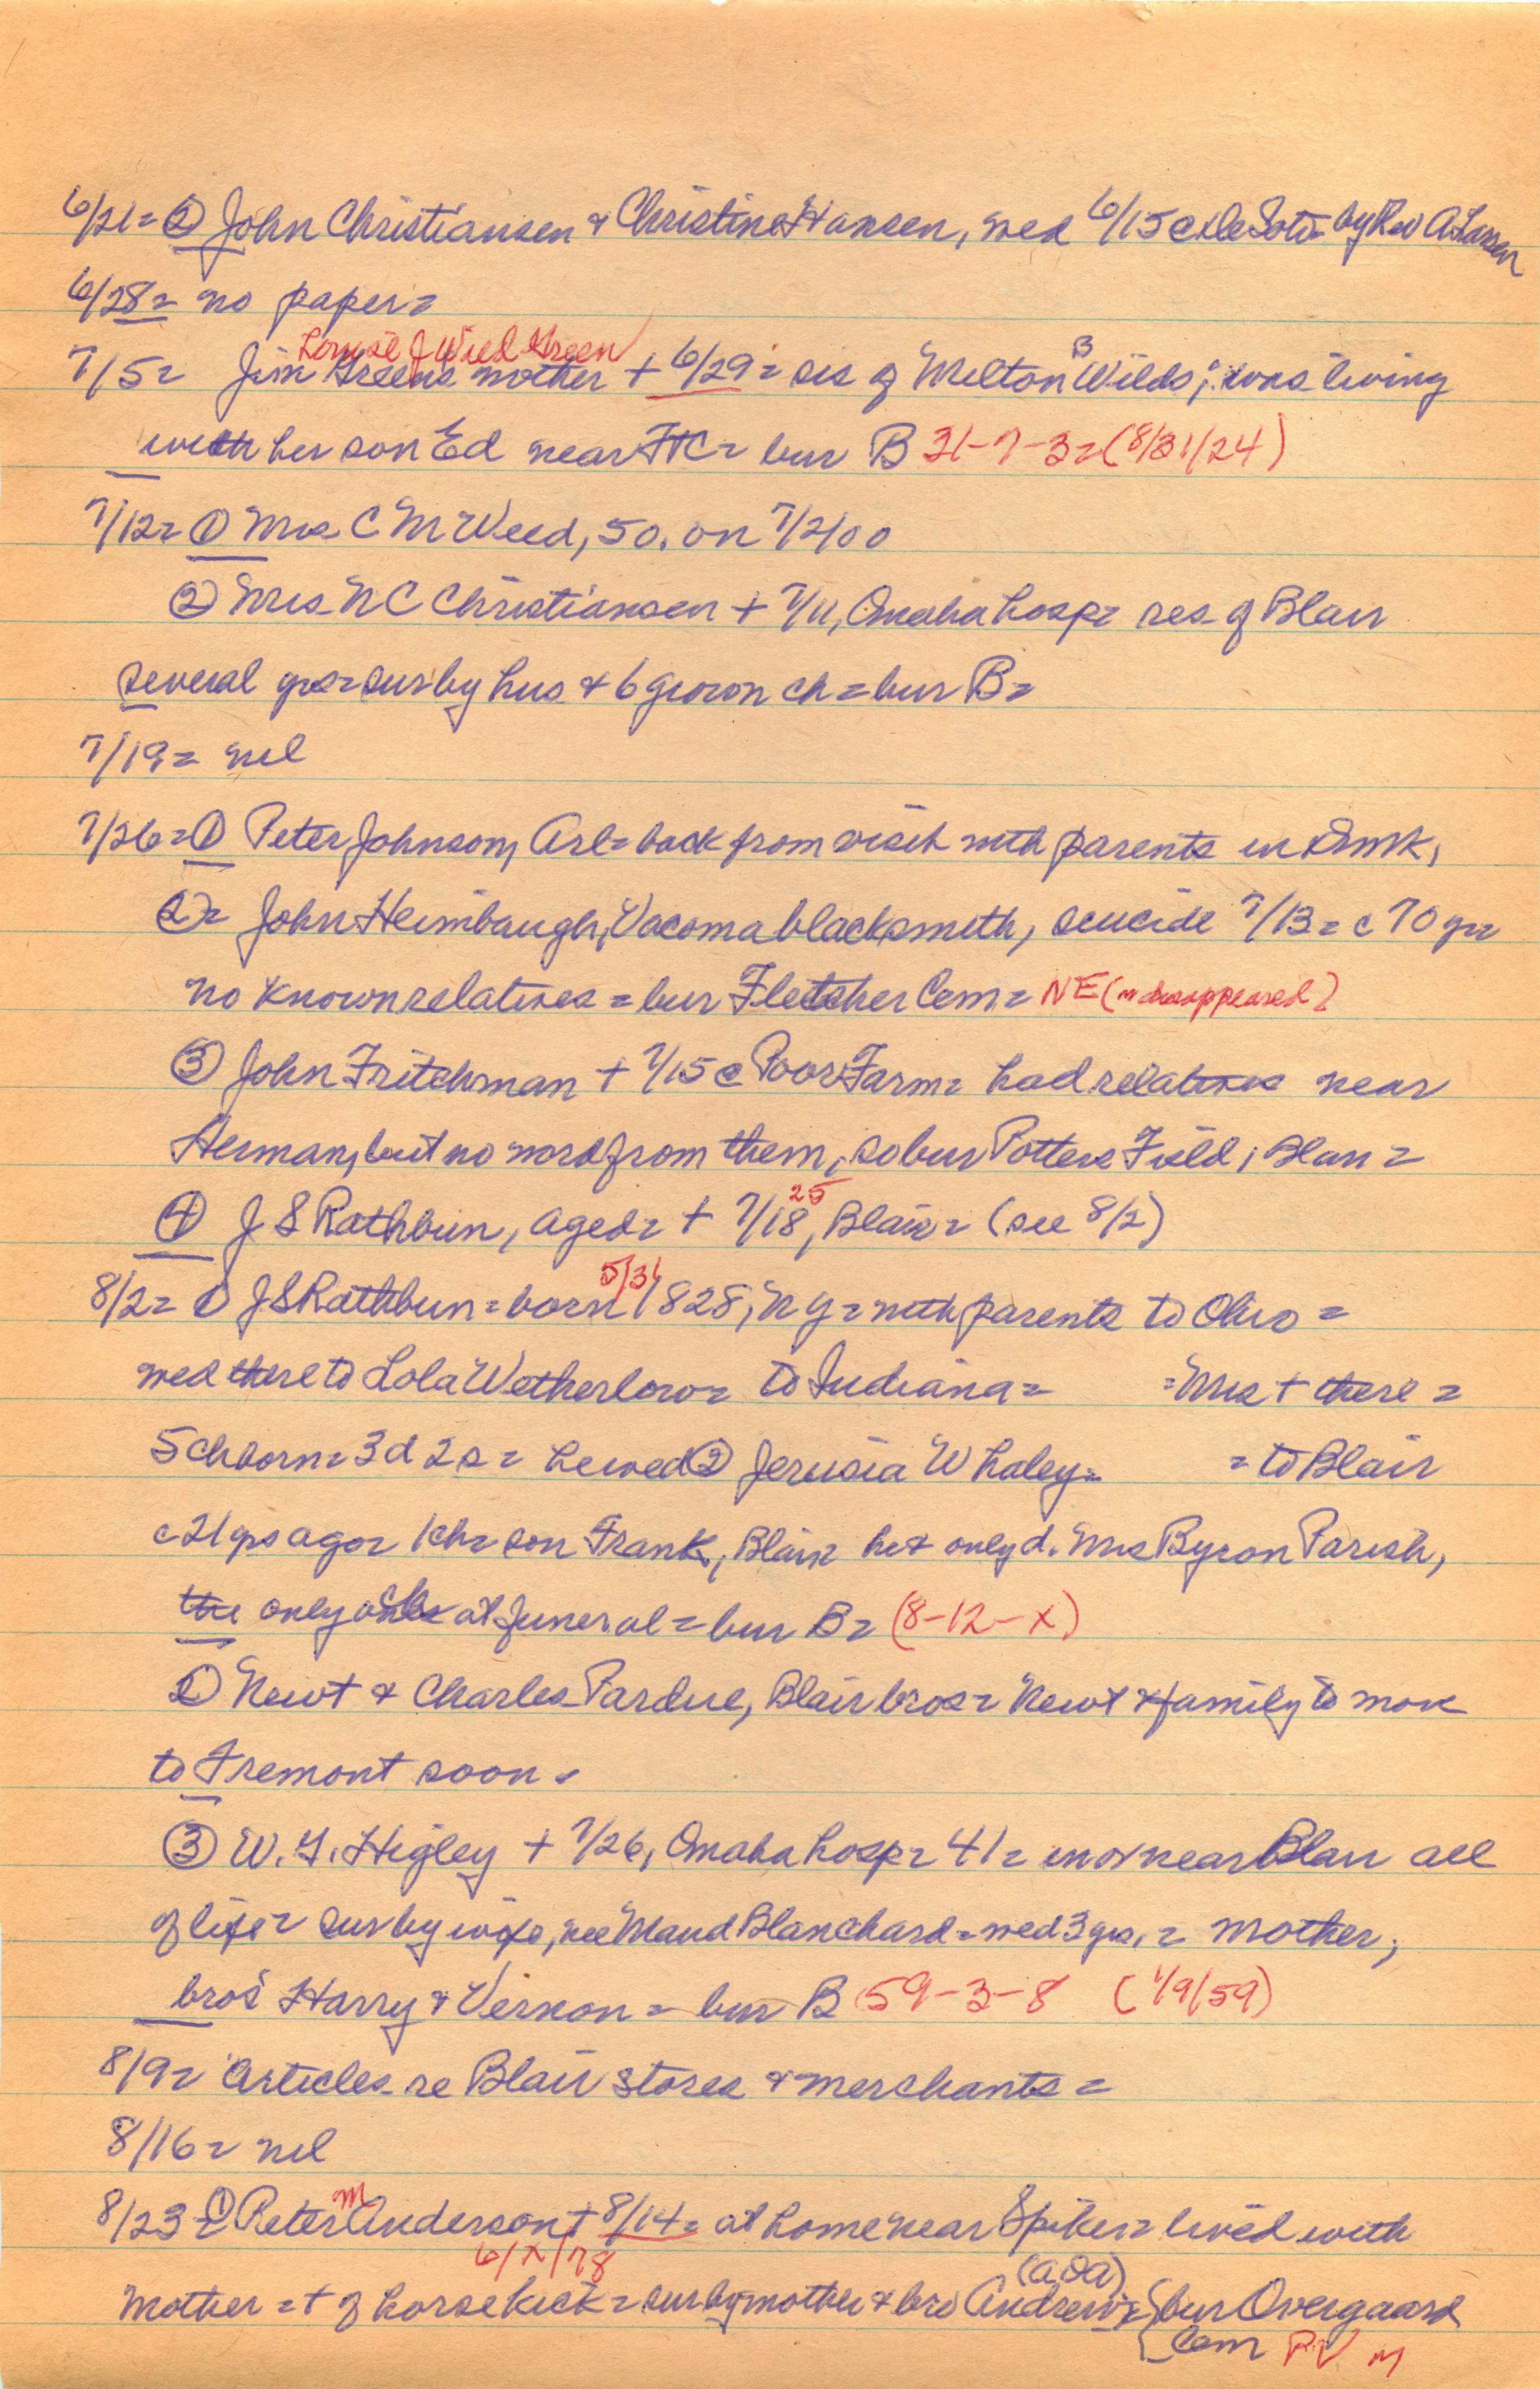 6/21= ② John Christiansen & Christine Hansen, wed 6/15 c De Soto= by Rev A Larsen
6/28= no paper=
Louise J Wild Green
7/5= Jim Greens mother + 6/29= sis of Milton B Wilds; was living
with her son Ed near FtC= bur B 31-7-3=(8/31/24)
7/12= ① Mrs C M Weed, 50. on 7/2/00
② Mrs N C Christiansen + 7/11, Omaha hosp= res of Blair
several yrs= sur by hus & 6 grown ch= bur B=
7/19= nil
7/26= ① Peter Johnson, Arl= back from visit with parents in Dmk,
②= John Heimbaugh, Vacoma blacksmith, suicide 7/13= c 70 yr=
no known relatives= bur Fletcher Cem= NE (m disappeared)
③ John Fritchman + 7/15 c Poor Farm= had relatives near
Herman, but no word from them, so bur Potters Field, Blair=
25
④ J S Rathbun, aged= + 7/18, Blair= (see 8/2)
5/31
8/2= ① J S Rathbun= born 1828, N Y= with parents to Ohio=
wed there to Lola Wetherlow= to Indiana= =Mrs + there=
5 ch born= 3d 2s= he wed ② Jerusia Whaley= = to Blair
c 21 yrs ago= 1 ch= son Frank, Blair= he & only d. Mrs Byron Parish,
the only ch at funeral= bur B= (8-12-x)
② Newt & Charles Pardue, Blair bros= Newt & family to move
to Fremont soon=
③ W. G. Higley + 7/26, Omaha hosp= 41= in or near Blair all
of life= sur by wife, nee Maud Blanchard= wed 3 yrs.= mother,
bros Harry & Vernon= bur B 59-3-8 (1/9/59)
8/9= Articles re Blair stores & merchants=
8/16= nil
8/23= ① Peter M Anderson + 8/14= at home near Spiker= lived with
6/x/78
mother= + of horse kick= sur by mother & bro Andrew (aOa)= {bur Overgaard
Cem PV M